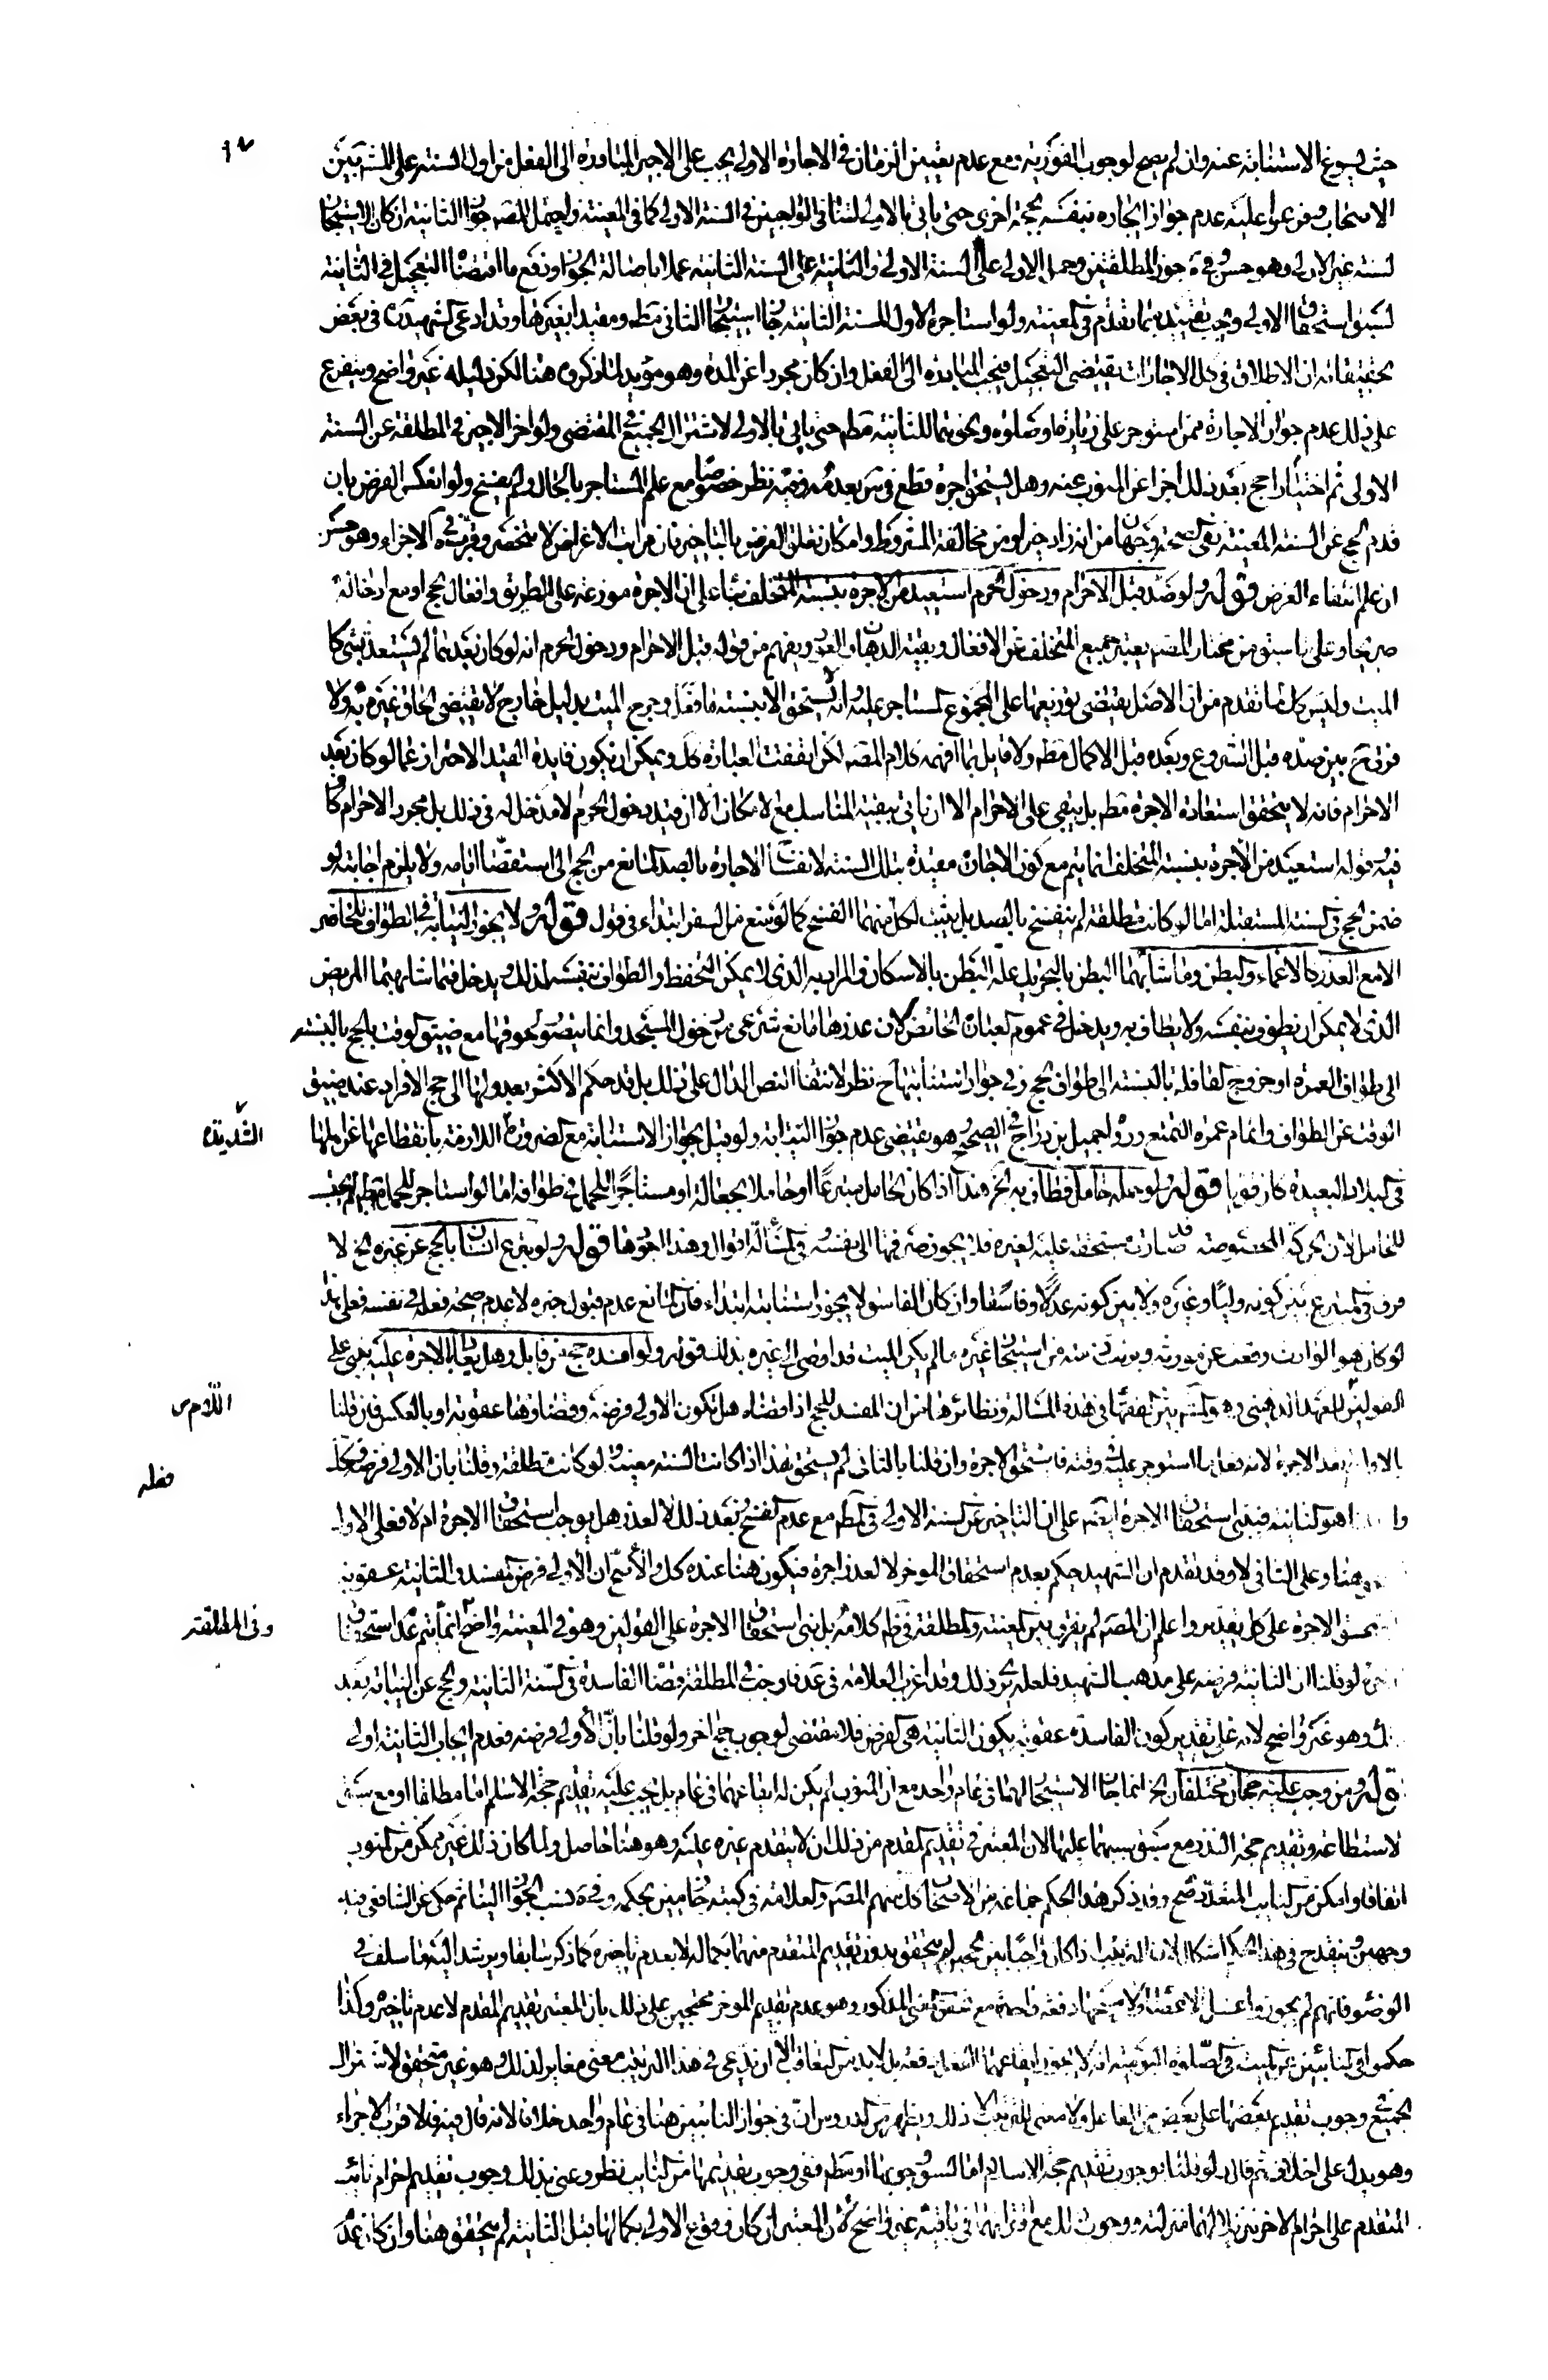 حيث يسوغ الاستنابة عنه وان لم يصح لوجوب الفورية ومع عدم تعيين الزمان في الاجارة الاولى يجب على الاجير المبادرة الى الفعل من اول السنة على المش بين
الاصحاب وفرعوا عليه عدم جواز ايجاره نفسه بحجة اخرى حتى ياتي بالاولى لتنافي الواجبين في السنة الاولى كما في المعينة ويحتمل المصـ جواز الثانية ان كان الاستيجار
لسنة غير الاولى وهو حسن وفي س جوز المطلقتين وحمل الاولى على السنة الاولى والثانية على السنة الثانية عملا باصالة الجواز ورفع ما اقتضاه التعجيل في الثانية
لسبق استحقاق الاولى ويجب تقييده بما تقدم في المعينة ولو استاجره الاول للسنة الثانية جاز استيجار الثاني مط ومقيدا بغيرها وقد ادعى الشهيد ره في بعض
تحقيقاته ان الاطلاق في كل الاجارات يقتضي التعجيل فيجب المبادرة الى الفعل وان كان مجردا عن المدة وهو مؤيد لما ذكروه هنا لكن دليله غير واضح ويتفرع
على ذلك عدم جواز الاجارة ممن استوجر على زيارة او صلوة ونحوهما للثانية مط حتى ياتي بالاولى لاشتراك الجميع في المقتضي ولو اخر الاجير في المطلقة عن السنة
الاولى ثم اختيارا حج بعد ذلك اجزا عن المنوب عنه وهل يستحق اجرة قطع في س بعدمه وفيه نظر خصوصا مع علم المستاجر بالحال ولم يفسخ ولو انعكس الفرض بان
قدم الحج عن السنة المعينة ففي صحته وجهان من انه زاد خيرا ومن مخالفة الشروط وامكان تعلق الغرض بالتاخير فان مراتب الاغراض لا تنحصر وقرب في س الاجزاء وهو حسن
ان علم انتفاء الغرض قوله ولو صد قبل الاحرام ودخول الحرم استعيد من الاجرة بنسبة المتخلف بناء على ان الاجرة موزعة على الطريق وافعال الحج او مع ادخاله
صريحا وعلى ما سبق من مختار المصـ يعتبر جميع المتخلف من الافعال وبقية الذهاب والعود ويفهم من قوله قبل الاحرام ودخول الحرم انه لو كان بعدهما لم يستعد شي كا
الميت وليس كل لما تقدم من ان الاصل يقتضي توزيعها على المجموع المستاجر عليه وانه لا يستحق الا بنسبة ما فعل وخرج الميت بدليل خارج لا يقتضي الحاق غيره به ولا
فرق ح بين صده قبل الشروع وبعده قبل الاكمال مط ولا قايل بما افهمه كلام المصـ لكن اتفقت العبارة كل ويمكن ان يكون فايدة القيد الاحتراز عما لو كان بعد
الاحرام فانه لا يتحقق استعادة الاجرة مط بل يبقى على الاحرام الا ان ياتي ببقية المناسك مع الامكان الا ان قيد دخول الحرم لا مدخل له في ذلك بل مجرد الاحرام كاف
فيه قوله استعيد من الاجرة بنسبة المتخلف انما يتم مع كون الاجارة مقيدة بتلك السنة لانفساخ الاجارة بالصد المانع من الحج الى استقضاء ايامه ولا يلزم اجابته لو
ضمن الحج في السنة المستقبلة اما لو كانت مطلقة لم تنفسخ بالصد بل يثبت لكل منهما الفسخ كما لو منع من السفر ابتداء في قول قوله ولا يجوز النيابة في الطواف للحاضر
الا مع العذر كالاغماء والبطن وما شابههما البطن بالتحريك علة البطن بالاسكان والمراد به الذي لا يمكن التحفظ والطواف بنفسه لذلك ويدخل فيما شابههما المريض
الذي لا يمكن ان يطوف بنفسه ولا يطاف به ويدخل في عموم العبارة الحائض لان عذرها مانع شرعي من دخول المسجد وانما يتصور لحوقها مع ضيق الوقت بالحج بالنسبة
الى طواف العمرة او خروج القافلة بالنسبة الى طواف الحج وفي جواز استنابتها ح نظر لانتفاء النص الدال على ذلك بل قد حكم الاكثر بعدولها الى حج الافراد عند ضيق
الوقت عن الطواف واتمام عمرة التمتع ورواه جميل بن دراج في الصحيح وهو يقتضي عدم جواز النيابة ولو قيل بجواز الاستنابة مع الضرورة اللازمة بانقطاعها عن اهلها
الشديدة
في البلاد البعيدة كان قويا قوله ولو حمله حامل فطاف به الخ هذا اذا كان الحامل متبرعا او حاملا بجعالة او مستاجرا للحمل في طوافه اما لو استاجر للحمل مط لم يحتسب
للحامل لان الحركة المخصوصة قد صارت مستحقة عليه لغيره فلا يجوز صرفها الى نفسه وفي المسألة اقوال وهذا اجودها قوله ولو تبرع انسان بالحج عن غيره الخ لا
فرق في المتبرع بين كونه وليا وغيره ولا بين كونه عدلا وفاسقا وان كان الفاسق لا يجوز استنابته ابتداء فان المانع عدم قبول خبره لا عدم صحة فعله في نفسه فعلى هذا
لو كان هو الوارث وقعت عن مورثه وبرئت ذمته من استيجار غيره ما لم يكن الميت قد اوصى الى غيره بذلك قوله ولو افسده حج من قابل وهل يعاد بالاجرة عليه يبنى على
القولين للعهد الذهني وهو المشهور بين الفقهاء في هذه المسألة ونظائرها من ان المفسد للحج اذا قضاه هل تكون الاولى فرضه وقضاؤها عقوبة او بالعكس فان قلنا
اللام س
بالاول لم تعد الاجرة لانه فعل ما استوجر عليه في وقته فاستحق الاجرة وان قلنا بالثاني لم يستحق هذا اذا كانت السنة معينة ولو كانت مطلقة وقلنا بان الاولى فرضه فكك
فعله
هو الثانية فيبنى استحقاق الاجرة ايضا على ان التاخير عن السنة الاولى في المط مع عدم الفسخ بعد ذلك لا لعذر هل يوجب استحقاق الاجرة ام لا فعلى الاول
هنا وعلى الثاني لا وقد تقدم ان الشهيد حكم بعدم استحقاق الموخر لا لعذر اجرة فيكون هنا عنده كل والاصح ان الاولى فرض مفسد والثانية عقوبة
يستحق الاجرة على كل تقدير واعلم ان المصـ لم يفرق بين المعينة والمطلقة في ظ كلامه بل بنى استحقاق الاجرة على القولين وهو في المعينة واضح انما يتم عدم استحقاق
وفي المطلقة
لو قلنا ان الثانية فرضه على مذهب الشهيد فلعله يرى ذلك وقد اغرب العلامة في عد فاوجب في المطلقة قضاء الفاسدة في السنة الثانية والحج عن النيابة بعد
ذلك وهو غير واضح لانه على تقدير كون الفاسدة عقوبة يكون الثانية هي الفرض فلا مقتضي لوجوب حج اخر ولو قلنا بان الاولى فرضه فعدم ايجاب الثانية اولى
قوله ومن وجب عليه حجان مختلفان الخ انما جاز الاستيجار لهما في عام واحد مع ان المنوب لم يكن له ايقاعهما في عام بل يجب عليه تقديم حجة الاسلام اما مطلقا او مع سبق
لاستطاعة وتقديم حجة النذر مع سبق سببها عليها لان المعتبر في تقديم المقدم من ذلك ان لا يتقدم غيره عليه وهو هنا حاصل ولما كان ذلك غير ممكن من المنوب
اتفاقا وامكن من النايب المتعدد صح وقد ذكر هذا الحكم جماعة من الاصحاب منهم المصـ والعلامة في كتبه جازمين بحكمه وفي س نسب الجواز الينا ثم حكى عن الشافعي فيه
وجهين وينقدح في هذا الحكم اشكال لان الترتيب اذا كان واجبا بين الحجين لم يتحقق بدون تقديم المتقدم منهما بكماله لا بعدم تاخيره كما ذكر سابقا ويرشد اليه ما سلف في
الوضوء فانهم لم يجوزوا غسل الاعضاء دفعة واحدة مع تحقق المعنى المذكور وهو عدم تقديم الموخر محتجين على ذلك بان المعتبر تقديم المقدم لا عدم تاخيره وكذا
حكموا في النائبين عن الميت في الصلوة اليومية انه لا يجوز ايقاعهما الفعل دفعة بل لا بد من التعاقب الا ان يدعى في هذا الترتيب معنى مغاير لذلك وهو غير متحقق لاشتراك
الجميع في وجوب تقديم بعضها على بعض من الفاعل ولا معنى للترتيب الا ذلك ويظهر من الدروس ان في جواز النائبين هنا في عام واحد خلافا لانه قال فيه والاقرب الاجزاء
وهو يدل على الخلاف ثم قال لو قلنا بوجوب تقديم حجة الاسلام اما لسبق وجوبها او مط ففي وجوب تقديمها من النايب نظر وعنى بذلك وجوب تقديم احرام نائب
المتقدم على احرام الاخر تنزيلا لهما منزلته ووجوب ذلك مع اقترانهما في باقيه غير واضح لان المعتبر ان كان وقوع الاولى بكمالها قبل الثانية لم يتحقق هنا وان كان عدم